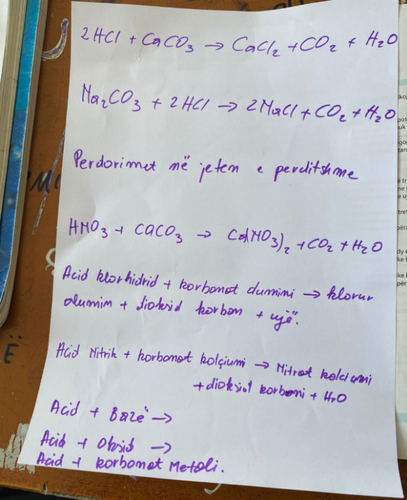 2HCl + CaCO3 → CaCl2 + CO2 + H2O
Na2CO3 + 2HCl → 2NaCl + CO2 + H2O
Perdorimet në jeten e perditshme
HNO3 + CaCO3 → Ca(NO3)2 + CO2 + H2O
Acid klorhidrid + karbonat alumini → klorur
alumin + dioksid karbon + ujë.
Acid Nitrik + karbonat kalciumi → Nitrat kalciumi
+ dioksid karboni + H2O
Acid + Bazë →
Acid + Oksid →
Acid + karbonat Metali.